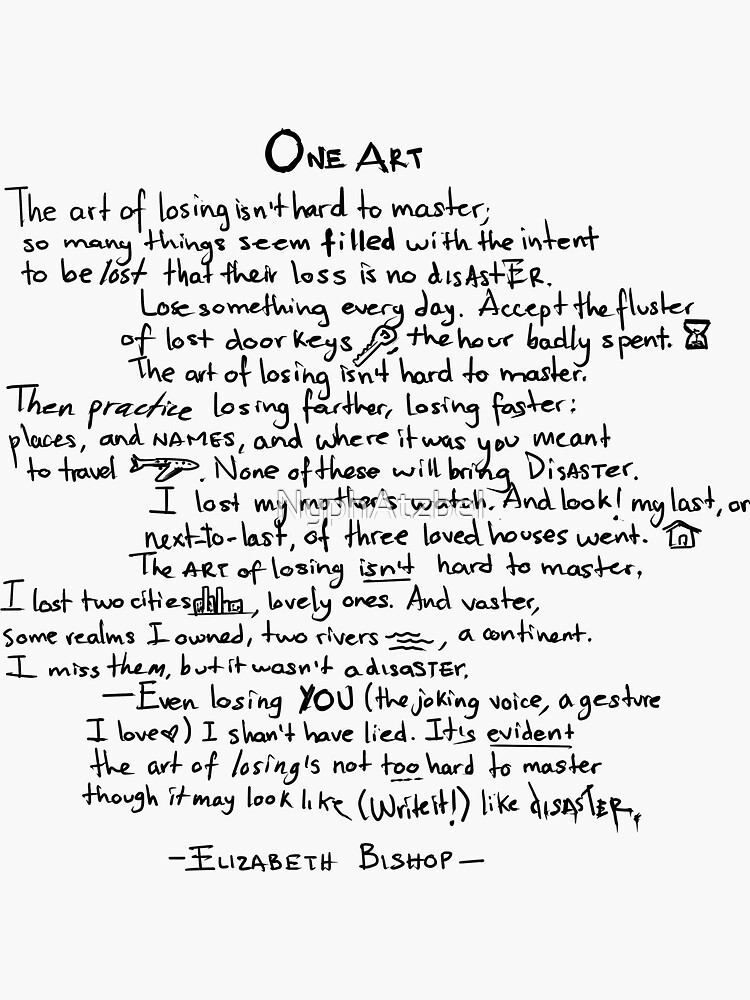 ONE ART
The art of losing isn't hard to master;
so many things seem filled with the intent
to be lost that their loss is no disAstER.
Lose something every day. Accept the fluster
of lost door keys, the hour badly spent.
The art of losing isn't hard to master.
Then practice losing farther, losing faster:
places, and NAMES, and where it was you meant
to travel. None of these will bring DisASTER.
I lost my mother's watch. And look! my last, or
next-to-last, of three loved houses went.
The ART of losing isn't hard to master.
I lost two cities, lovely ones. And vaster,
some realms I owned, two rivers, a continent.
I miss them, but it wasn't a disaSTER.
—Even losing YOU (the joking voice, a gesture
I love) I shan't have lied. It's evident
the art of losing's not too hard to master
though it may look like (Write it!) like disASTER.
—ELIZABETH BISHOP—
NyphAtzbel